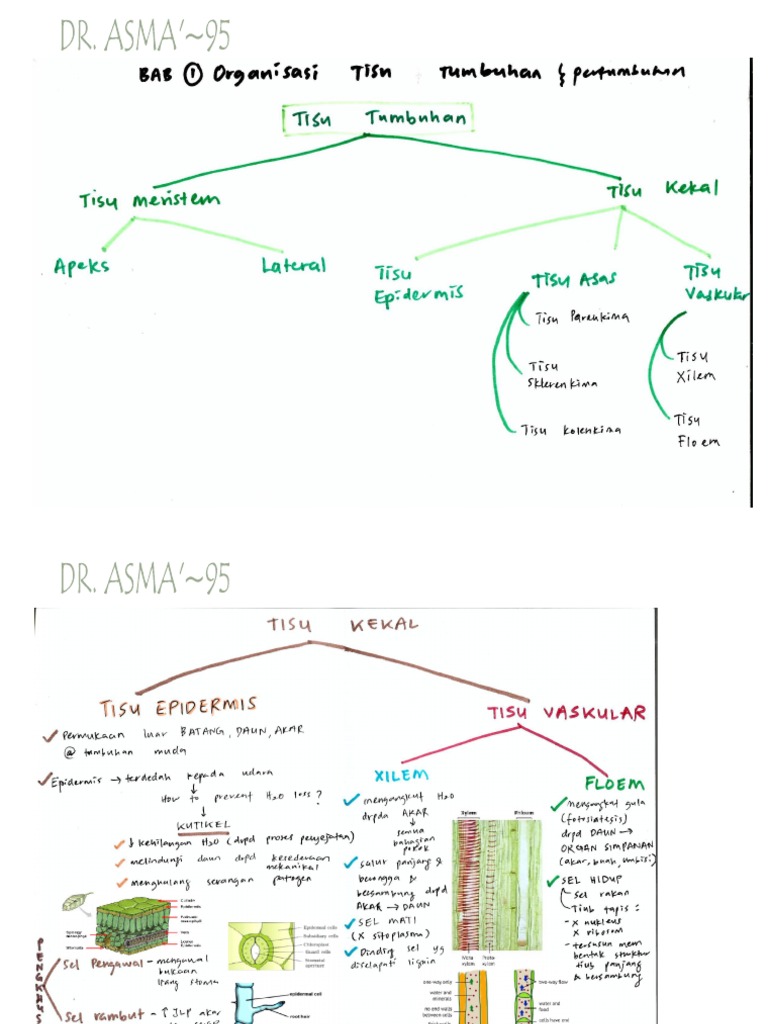 DR. ASMA'~95
BAB ① Organisasi Tisu Tumbuhan & pertumbuhan
Tisu Tumbuhan
Tisu meristem
Tisu Kekal
Apeks
Lateral
Tisu Epidermis
Tisu Asas
Tisu Vaskular
Tisu Parenkima
Tisu Sklerenkima
Tisu Kolenkima
Tisu Xilem
Tisu Floem
DR. ASMA'~95
TISU KEKAL
TISU EPIDERMIS
✓ Permukaan luar BATANG, DAUN, AKAR
@ tumbuhan muda
✓ Epidermis → terdedah kepada udara
↓
How to prevent H2O loss?
↓
KUTIKEL
✓ ↓ kehilangan H2O (drpd proses penyejatan)
✓ melindungi daun drpd kecederaan mekanikal
✓ menghalang serangan patogen
Cuticle
Epidermal cells
Subsidiary cells
Chloroplast
Guard cells
Stomatal aperture
Sel Pengawal - mengawal
bukaan
liang stoma
Sel rambut - ↑ JLP akar
epidermal cell
root hair
TISU VASKULAR
XILEM
✓ mengangkut H2O
drpda AKAR
↓
semua
bahagian
pokok
✓ salur panjang &
berongga &
bersambung drpd
AKAR → DAUN
✓ SEL MATI
(X sitoplasma)
✓ Dinding sel yg
diselaputi lignin
Xylem
Phloem
Meta xylem
Proto xylem
one way only
water and
minerals
no end walls
between cells
FLOEM
✓ mengangkut gula
(fotosintesis)
drpd DAUN →
ORGAN SIMPANAN
(akar, buah, umbisi)
✓ SEL HIDUP
Sel rakan
Tiub tapis :
- X nukleus
X ribosom
- tersusun mem
bentuk struktur
tiub panjang
& bersambung
two-way flow
water and
food